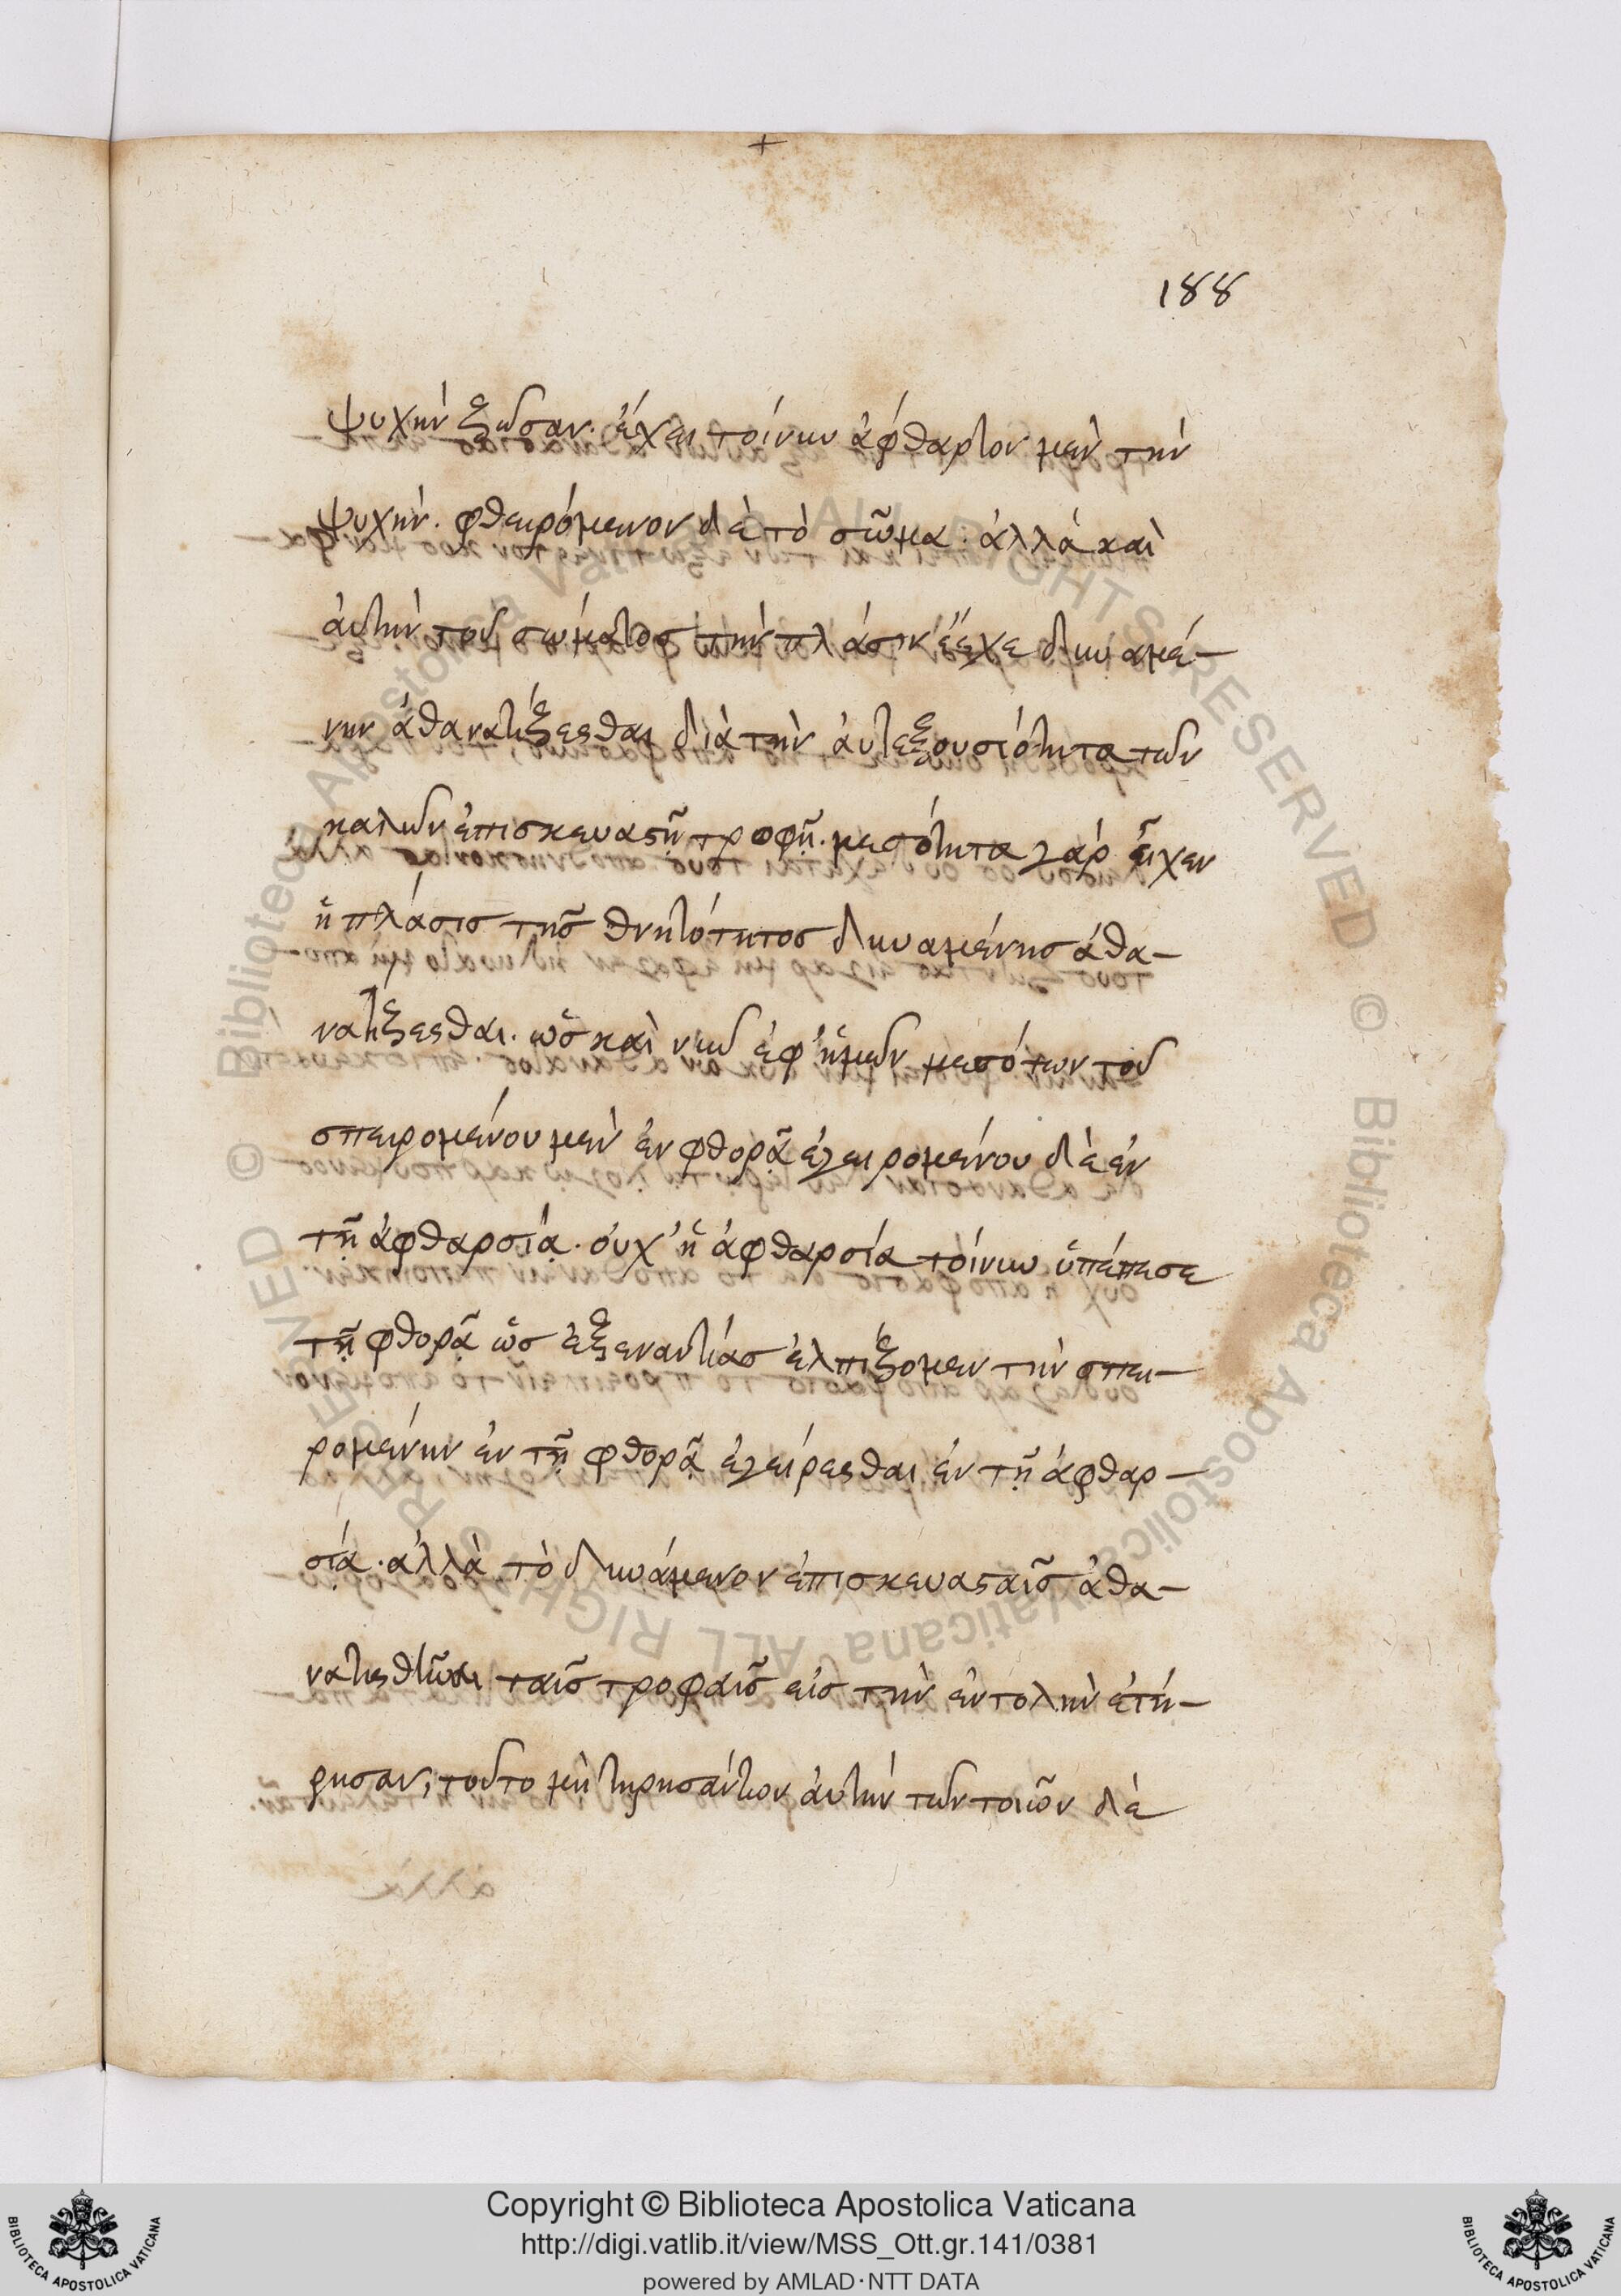 188
ψυχὴν ζῶσαν. ἔχει τοίνυν ἄφθαρτον μὲν τὴν
ψυχήν. φθειρόμενον δὲ τὸ σῶμα. ἀλλὰ καὶ
ἀυτὴν τοῦ σώματος τὴν πλάσιν ἔσχε δυναμέ-
νην ἀθανατίζεσθαι διὰ τὴν ἀυτεξουσιότητα τῶν
καλῶν ἐπισκευαστῇ τροφῇ. μεσότητα γὰρ εἶχεν
ἡ πλάσις τῆς θνητότητος δυναμένης ἀθα-
νατίζεσθαι. ὡς καὶ νῦν ἐφ' ἡμῶν μεσότων τοῦ
σπειρομένου μὲν ἐν φθορᾷ ἐγειρομένου δὲ ἐν
τῇ ἀφθαρσίᾳ. ὀυχ' ἡ ἀφθαρσία τοίνυν ὑπέπεσε
τῇ φθορᾷ ὡς ἐξεναντίας ἐλπίζομεν τὴν σπει-
ρομένην ἐν τῇ φθορᾷ ἐγείρεσθαι ἐν τῇ ἀφθαρ-
σίᾳ. ἀλλὰ τὸ δυνάμενον ἐπισκευασταῖς ἀθα-
ταῖς τροφαῖς εἰς τὴν ἐντολὴν ἐτή-
ρησαν, τοῦτο μὴ τηρησάντον ἀυτὴν τῶν δὲ
Copyright © Biblioteca Apostolica Vaticana
http://digi.vatlib.it/view/MSS_Ott.gr.141/0381
powered by AMLAD·NTT DATA
BIBLIOTECA APOSTOLICA VATICANA
BIBLIOTECA APOSTOLICA VATICANA